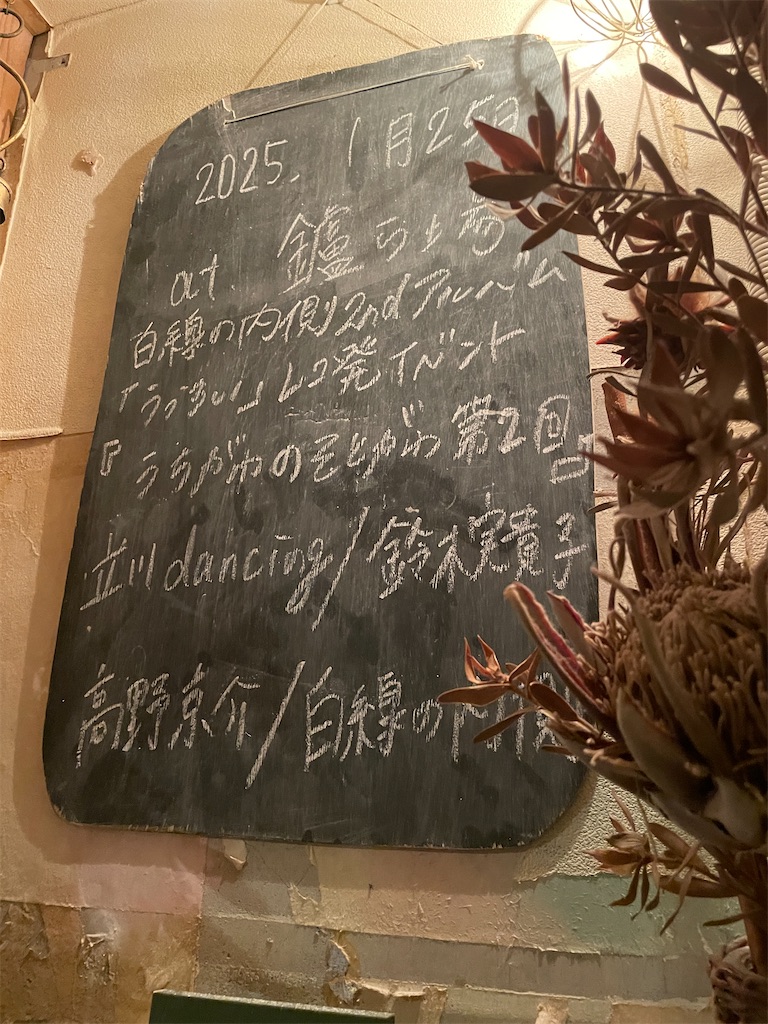 2025. 1月25日
at. 鑪ら上
白線の内側2ndアルバム
レコ発イベント
『うちがわのそとがわ 第2回』
立川dancing/鈴木実貴子
高野京介/白線の内側